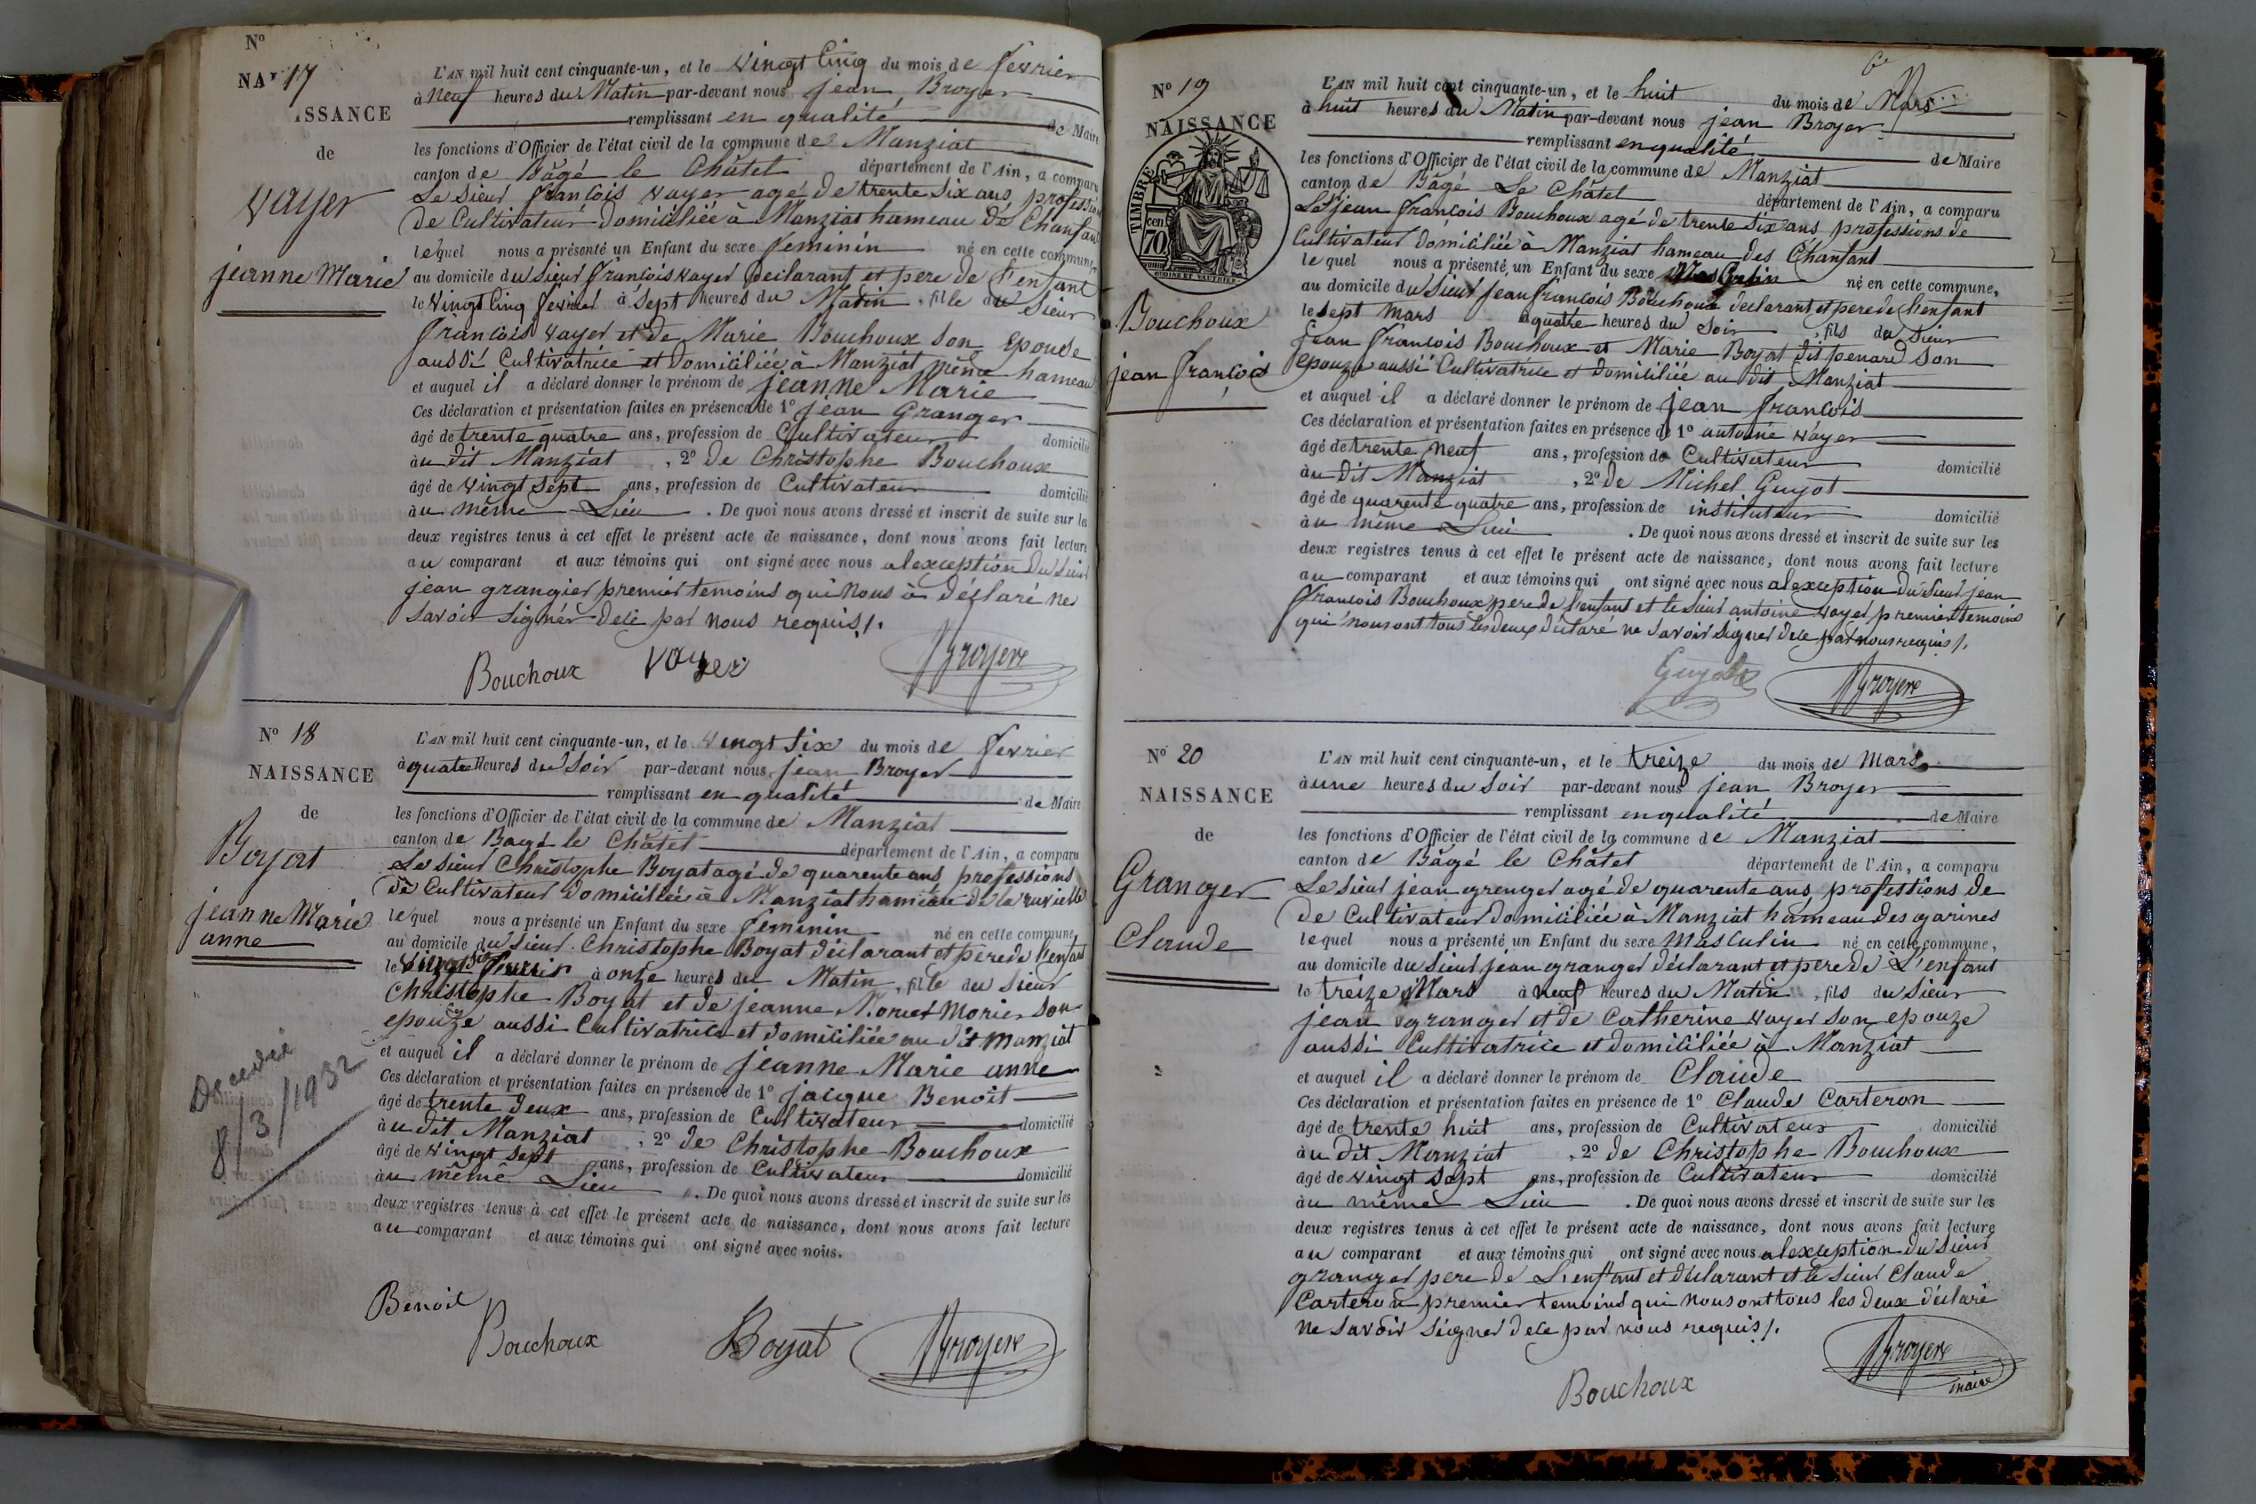 Nº
NAr 17
ISSANCE
de
Vayer
jeanne Marie
L'AN mil huit cent cinquante-un, et le Vingt Cinq du mois de fevrier
à Neuf heures du Matin par-devant nous jean Broyer
remplissant en qualité de Maire
les fonctions d'Officier de l'état civil de la commune de Manziat
canton de Bâgé le Châtel département de l'Ain, a comparu
Le Sieur françois Vayer agé de trente Six ans profession
de Cultivateur Domiciliée à Manziat hameau de Chanfant
lequel nous a présenté un Enfant du sexe feminin né en cette commune,
au domicile du Sieur françois Vayer Declarant et pere de l'enfant
le Vingt Cinq fevrier à Sept heures du Matin, fille du Sieur
françois Vayer et de Marie Bouchoux Son Epouse
aussi Cultivatrice et Domiciliée à Manziat même hameau
et auquel il a déclaré donner le prénom de jeanne Marie
Ces déclaration et présentation faites en présence de 1º jean Granger
âgé de trente quatre ans, profession de Cultivateur domicilié
au dit Manziat, 2º de Christophe Bouchoux
âgé de Vingt Sept ans, profession de Cultivateur domicilié
au même Lieu. De quoi nous avons dressé et inscrit de suite sur les
deux registres tenus à cet effet le présent acte de naissance, dont nous avons fait lecture
au comparant et aux témoins qui ont signé avec nous alexception du Sieur
jean grangier premier temoins qui Nous à déclaré ne
Savoir Signer De cè par nous requis /.
Bouchoux Vayer Broyer
Nº 18
NAISSANCE
de
Boyat
jeanne Marie
anne
Decedée
8/3/1932
L'AN mil huit cent cinquante-un, et le Vingt Six du mois de fevrier
à quatre heures du Soir par-devant nous jean Broyer
remplissant en qualité de Maire
les fonctions d'Officier de l'état civil de la commune de Manziat
canton de Bagé le Châtel département de l'Ain, a comparu
Le Sieur Christophe Boyat agé de quarente ans professions
de Cultivateur domiciliée à Manziat hameau de la
lequel nous a présenté un Enfant du sexe feminin né en cette commune,
au domicile du Sieur Christophe Boyat déclarant et pere de l'enfant
le Vingt Six fevrier à onze heures du Matin, fille du Sieur
Christophe Boyat et de jeanne Morier Son
epouze aussi Cultivatrice et domiciliée au dit Manziat
et auquel il a déclaré donner le prénom de jeanne Marie anne
Ces déclaration et présentation faites en présence de 1º jacque Benoit
âgé de trente deux ans, profession de Cultivateur domicilié
au dit Manziat, 2º de Christophe Bouchoux
âgé de Vingt Sept ans, profession de Cultivateur domicilié
au même Lieu. De quoi nous avons dressé et inscrit de suite sur les
deux registres tenus à cet effet le présent acte de naissance, dont nous avons fait lecture
au comparant et aux témoins qui ont signé avec nous.
Benoit
Bouchoux Boyat Broyer
Nº 19
NAISSANCE
TIMBRE
cen
70
Bouchoux
jean françois
L'AN mil huit cent cinquante-un, et le huit du mois de Mars
à huit heures du Matin par-devant nous jean Broyer
remplissant en qualité de Maire
les fonctions d'Officier de l'état civil de la commune de Manziat
canton de Bâgé Le Châtel département de l'Ain, a comparu
Le Sr jean françois Bouchoux agé de trente Six ans professions de
Cultivateur domiciliée à Manziat hameau des Chanfant
lequel nous a présenté un Enfant du sexe Masculin né en cette commune,
au domicile du Sieur jean françois Bouchoux declarant et pere de l'enfant
le sept Mars à quatre heures du Soir, fils du Sieur
jean françois Bouchoux et Marie Boyat dit penard Son
epouze aussi Cultivatrice et domiciliée au dit Manziat
et auquel il a déclaré donner le prénom de jean françois
Ces déclaration et présentation faites en présence de 1º antoine Vayer
âgé de trente Neuf ans, profession de Cultivateur domicilié
au dit Manziat, 2º de Michel Guyot
âgé de quarente quatre ans, profession de instituteur domicilié
au même Lieu. De quoi nous avons dressé et inscrit de suite sur les
deux registres tenus à cet effet le présent acte de naissance, dont nous avons fait lecture
au comparant et aux témoins qui ont signé avec nous alexception du Sieur jean
françois Bouchoux pere de l'enfant et le Sieur antoine Vayer premier temoins
qui nous ont tous les deux déclaré ne Savoir Signer de ce par nous requis /.
Guyot Broyer
Nº 20
NAISSANCE
de
Granger
Claude
L'AN mil huit cent cinquante-un, et le treize du mois de Mars
à une heures du Soir par-devant nous jean Broyer
remplissant en qualité de Maire
les fonctions d'Officier de l'état civil de la commune de Manziat
canton de Bâgé le Châtel département de l'Ain, a comparu
Le Sieur jean grenger agé de quarente ans professions de
de Cultivateur domiciliée à Manziat hameau des garines
lequel nous a présenté un Enfant du sexe Masculin né en cette commune,
au domicile du Sieur jean granger déclarant et pere de L'enfant
le treize Mars à neuf heures du Matin, fils du Sieur
jean granger et de Catherine Vayer Son epouze
aussi Cultivatrice et domiciliée à Manziat
et auquel il a déclaré donner le prénom de Claude
Ces déclaration et présentation faites en présence de 1º Claude Carteron
âgé de trente huit ans, profession de Cultivateur domicilié
au dit Manziat, 2º de Christophe Bouchoux
âgé de Vingt Sept ans, profession de Cultivateur domicilié
au même Lieu. De quoi nous avons dressé et inscrit de suite sur les
deux registres tenus à cet effet le présent acte de naissance, dont nous avons fait lecture
au comparant et aux témoins qui ont signé avec nous alexception du Sieur
granger pere de L'enfant et déclarant et le Sieur Claude
Carteron premier temoins qui nous ont tous les deux déclaré
ne Savoir Signer de ce par nous requis /.
Bouchoux Broyer
maire